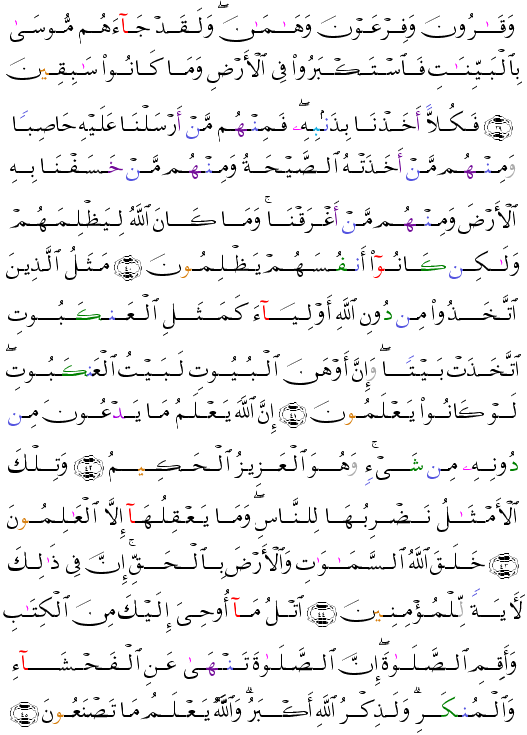 وَقَـٰرُونَ وَفِرْعَوْنَ وَهَـٰمَـٰنَ ۖ وَلَقَدْ جَآءَهُم مُّوسَىٰ
بِٱلْبَيِّنَـٰتِ فَٱسْتَكْبَرُوا۟ فِى ٱلْأَرْضِ وَمَا كَانُوا۟ سَـٰبِقِينَ
۝٣٩ فَكُلًّا أَخَذْنَا بِذَنۢبِهِۦ ۖ فَمِنْهُم مَّنْ أَرْسَلْنَا عَلَيْهِ حَاصِبًا
وَمِنْهُم مَّنْ أَخَذَتْهُ ٱلصَّيْحَةُ وَمِنْهُم مَّنْ خَسَفْنَا بِهِ
ٱلْأَرْضَ وَمِنْهُم مَّنْ أَغْرَقْنَا ۚ وَمَا كَانَ ٱللَّهُ لِيَظْلِمَهُمْ
وَلَـٰكِن كَانُوٓا۟ أَنفُسَهُمْ يَظْلِمُونَ ۝٤٠ مَثَلُ ٱلَّذِينَ
ٱتَّخَذُوا۟ مِن دُونِ ٱللَّهِ أَوْلِيَآءَ كَمَثَلِ ٱلْعَنكَبُوتِ
ٱتَّخَذَتْ بَيْتًا ۖ وَإِنَّ أَوْهَنَ ٱلْبُيُوتِ لَبَيْتُ ٱلْعَنكَبُوتِ ۖ
لَوْ كَانُوا۟ يَعْلَمُونَ ۝٤١ إِنَّ ٱللَّهَ يَعْلَمُ مَا يَدْعُونَ مِن
دُونِهِۦ مِن شَىْءٍ ۚ وَهُوَ ٱلْعَزِيزُ ٱلْحَكِيمُ ۝٤٢ وَتِلْكَ
ٱلْأَمْثَـٰلُ نَضْرِبُهَا لِلنَّاسِ ۖ وَمَا يَعْقِلُهَآ إِلَّا ٱلْعَـٰلِمُونَ
۝٤٣ خَلَقَ ٱللَّهُ ٱلسَّمَـٰوَٰتِ وَٱلْأَرْضَ بِٱلْحَقِّ ۚ إِنَّ فِى ذَٰلِكَ
لَـَٔايَةً لِّلْمُؤْمِنِينَ ۝٤٤ ٱتْلُ مَآ أُوحِىَ إِلَيْكَ مِنَ ٱلْكِتَـٰبِ
وَأَقِمِ ٱلصَّلَوٰةَ ۖ إِنَّ ٱلصَّلَوٰةَ تَنْهَىٰ عَنِ ٱلْفَحْشَآءِ
وَٱلْمُنكَرِ ۗ وَلَذِكْرُ ٱللَّهِ أَكْبَرُ ۗ وَٱللَّهُ يَعْلَمُ مَا تَصْنَعُونَ ۝٤٥